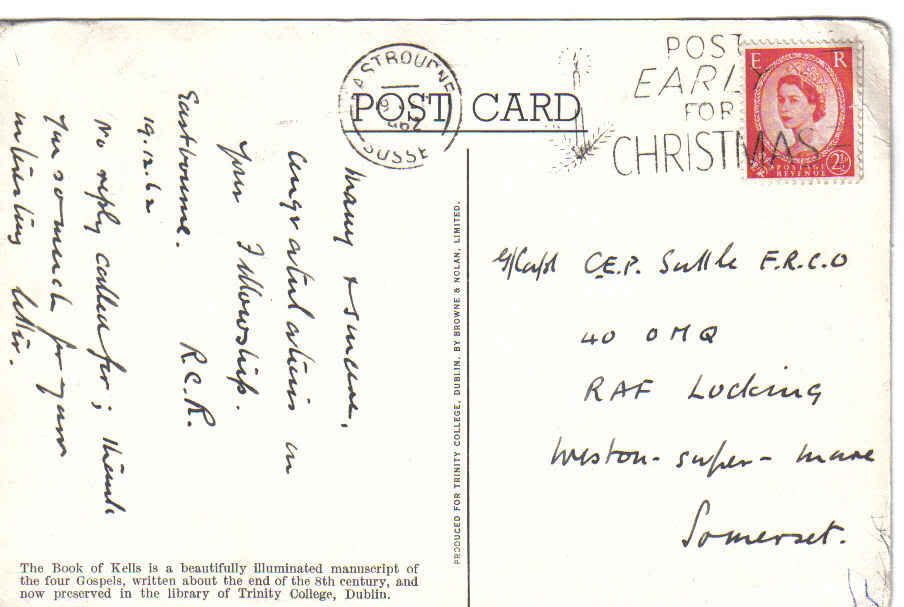 EASTBOURNE
SUSSEX
POST
EARLY
FOR
CHRISTMAS
E R
POSTAGE
REVENUE
2½D
POST CARD
Many & sincere,
Congratulations on
your Fellowship.
Eastbourne. R.C.R.
19.12.62
No reply called for; thank
you so much for your
interesting letter.
PRODUCED FOR TRINITY COLLEGE, DUBLIN, BY BROWNE & NOLAN, LIMITED.
G/Capt C.E.P. Suttle F.R.C.O
40 OMQ
RAF Locking
Weston-super-mare
Somerset.
The Book of Kells is a beautifully illuminated manuscript of
the four Gospels, written about the end of the 8th century, and
now preserved in the library of Trinity College, Dublin.